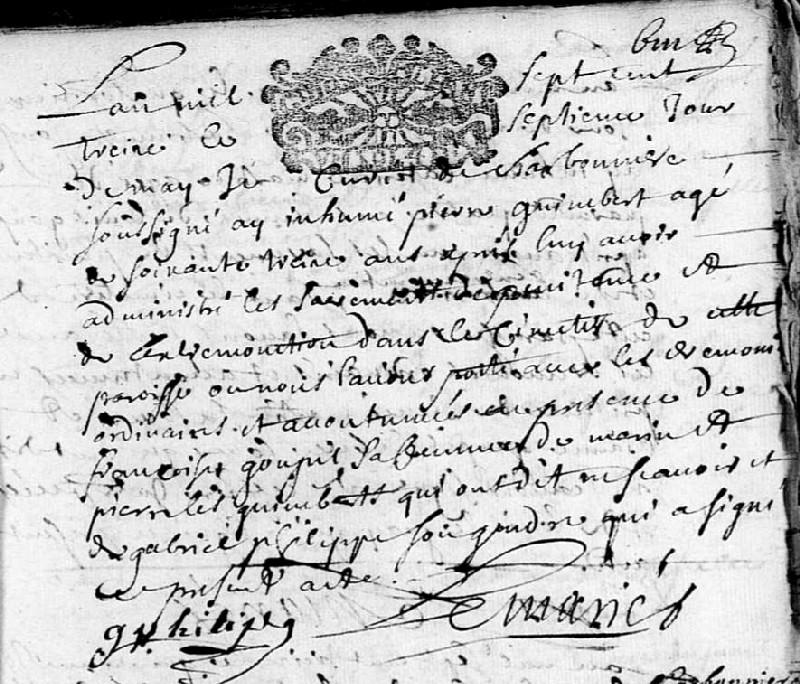 Lan mil sept cent
treize le septieme Jour
de may Je Curé de charbonniere
soussigné ay inhumé pierre guimbert agé
de soixante treize ans apres luy avoir
administré les sacements de penitence et
de lextremonction dans le Cimetiere de cette
paroisse ou nous lavons porté avec les ceremoni
ordinaires et acoutumées en presence de
francoise goupil sa femme de marin et
pierre les guimbert qui ont dit ne scavoir et
de gabriel philippe son gendre qui a signé
le present acte
g philipe